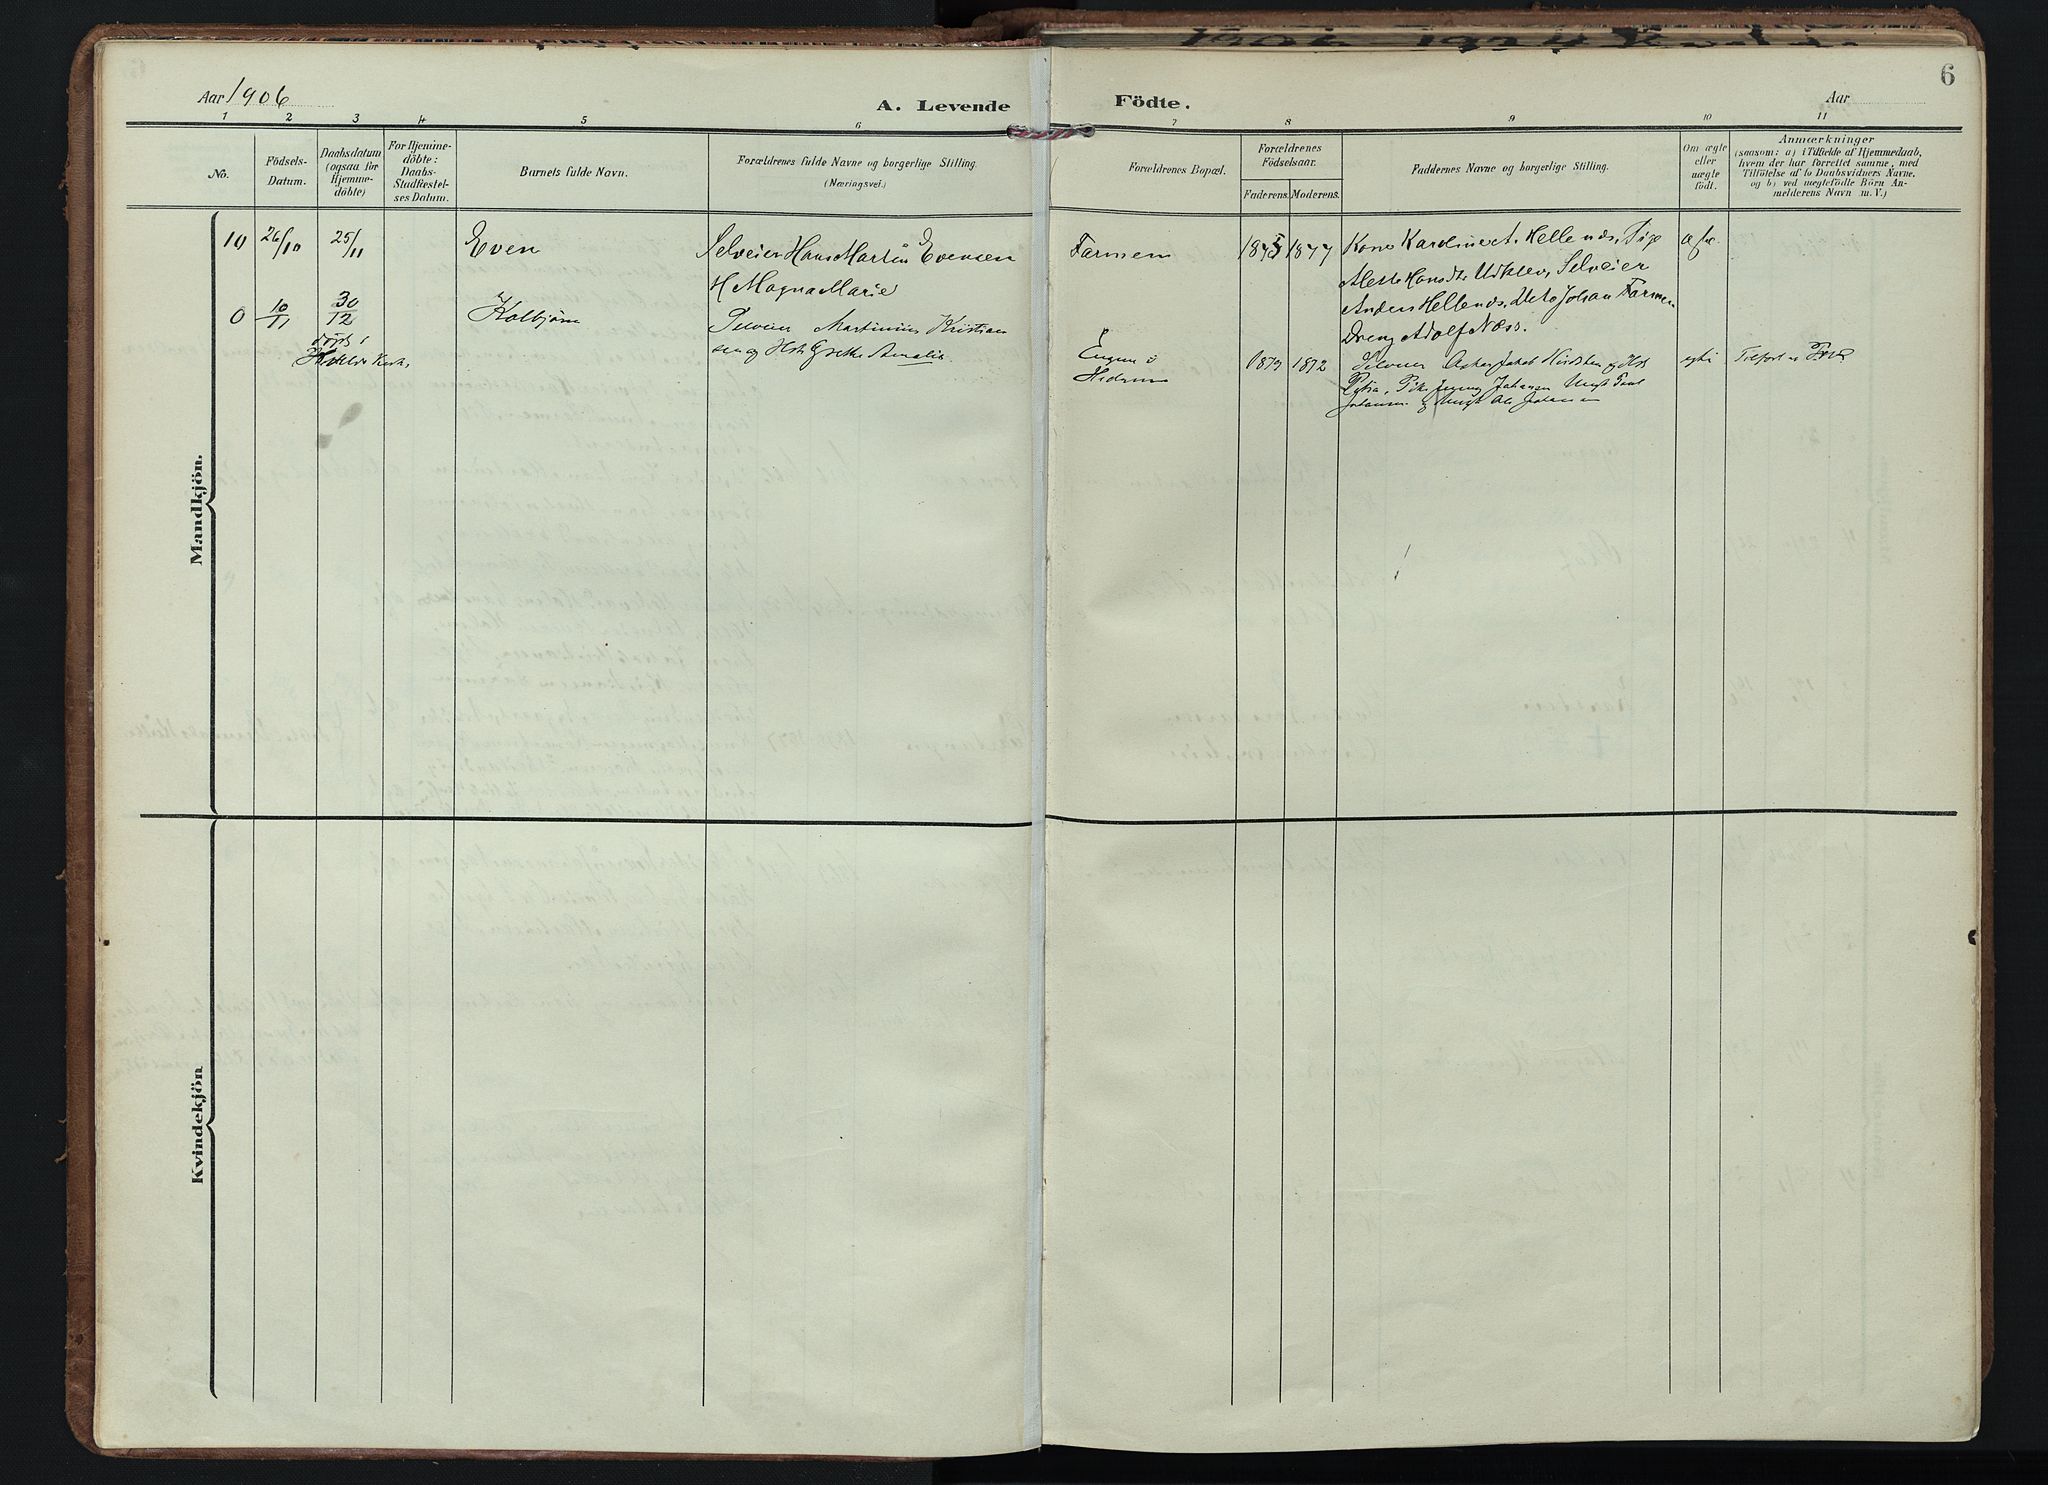 Aar 1906
A. Levende
Födte.
Aar
6
1
2
3
4
5
6
7
8
9
10
11
No.
Födsels-
Datum.
Daabsdatum
(ogsaa for
Hjemme-
döbte)
For Hjemme-
döbte:
Daabs-
Stadfæstel-
ses Datum.
Barnets fulde Navn.
Forældrenes fulde Navne og borgerlige Stilling.
(Næringsvei.)
Forældrenes Bopæl.
Forældrenes
Födselsaar.
Faderens.
Moderens.
Faddernes Navne og borgerlige Stilling.
Om ægte
eller
uægte
födt.
Anmærkninger
(saasom: a) i Tilfælde af Hjemmedaab,
hvem der har forrettet samme, med
Tilföielse af to Daabsvidners Navne,
og b) ved uægtefödte Börn An-
melderens Navn m. V.)
Mandkjön.
10
26/10
25/11
Even
Selveier Hans Martin Evensen
H Magna Marie
Farmen
1875
1877
Kone Karoline A. Hellenæs, Pige
Alette Hansdtr Udklev, Selveier
Anders Hellenæs, Johan Farmen
Dreng Adolf Næss.
0
10/11
30/12
döbt i
Kirke
Kolbjörn
Selveier Martinius Kristian
sen og Hst Grethe Amalie
1873
1872
Selveier Jakob og Hst
Petra, Pike Johansen Ungk
Johansen og Ungk Johansen
Kvindekjön